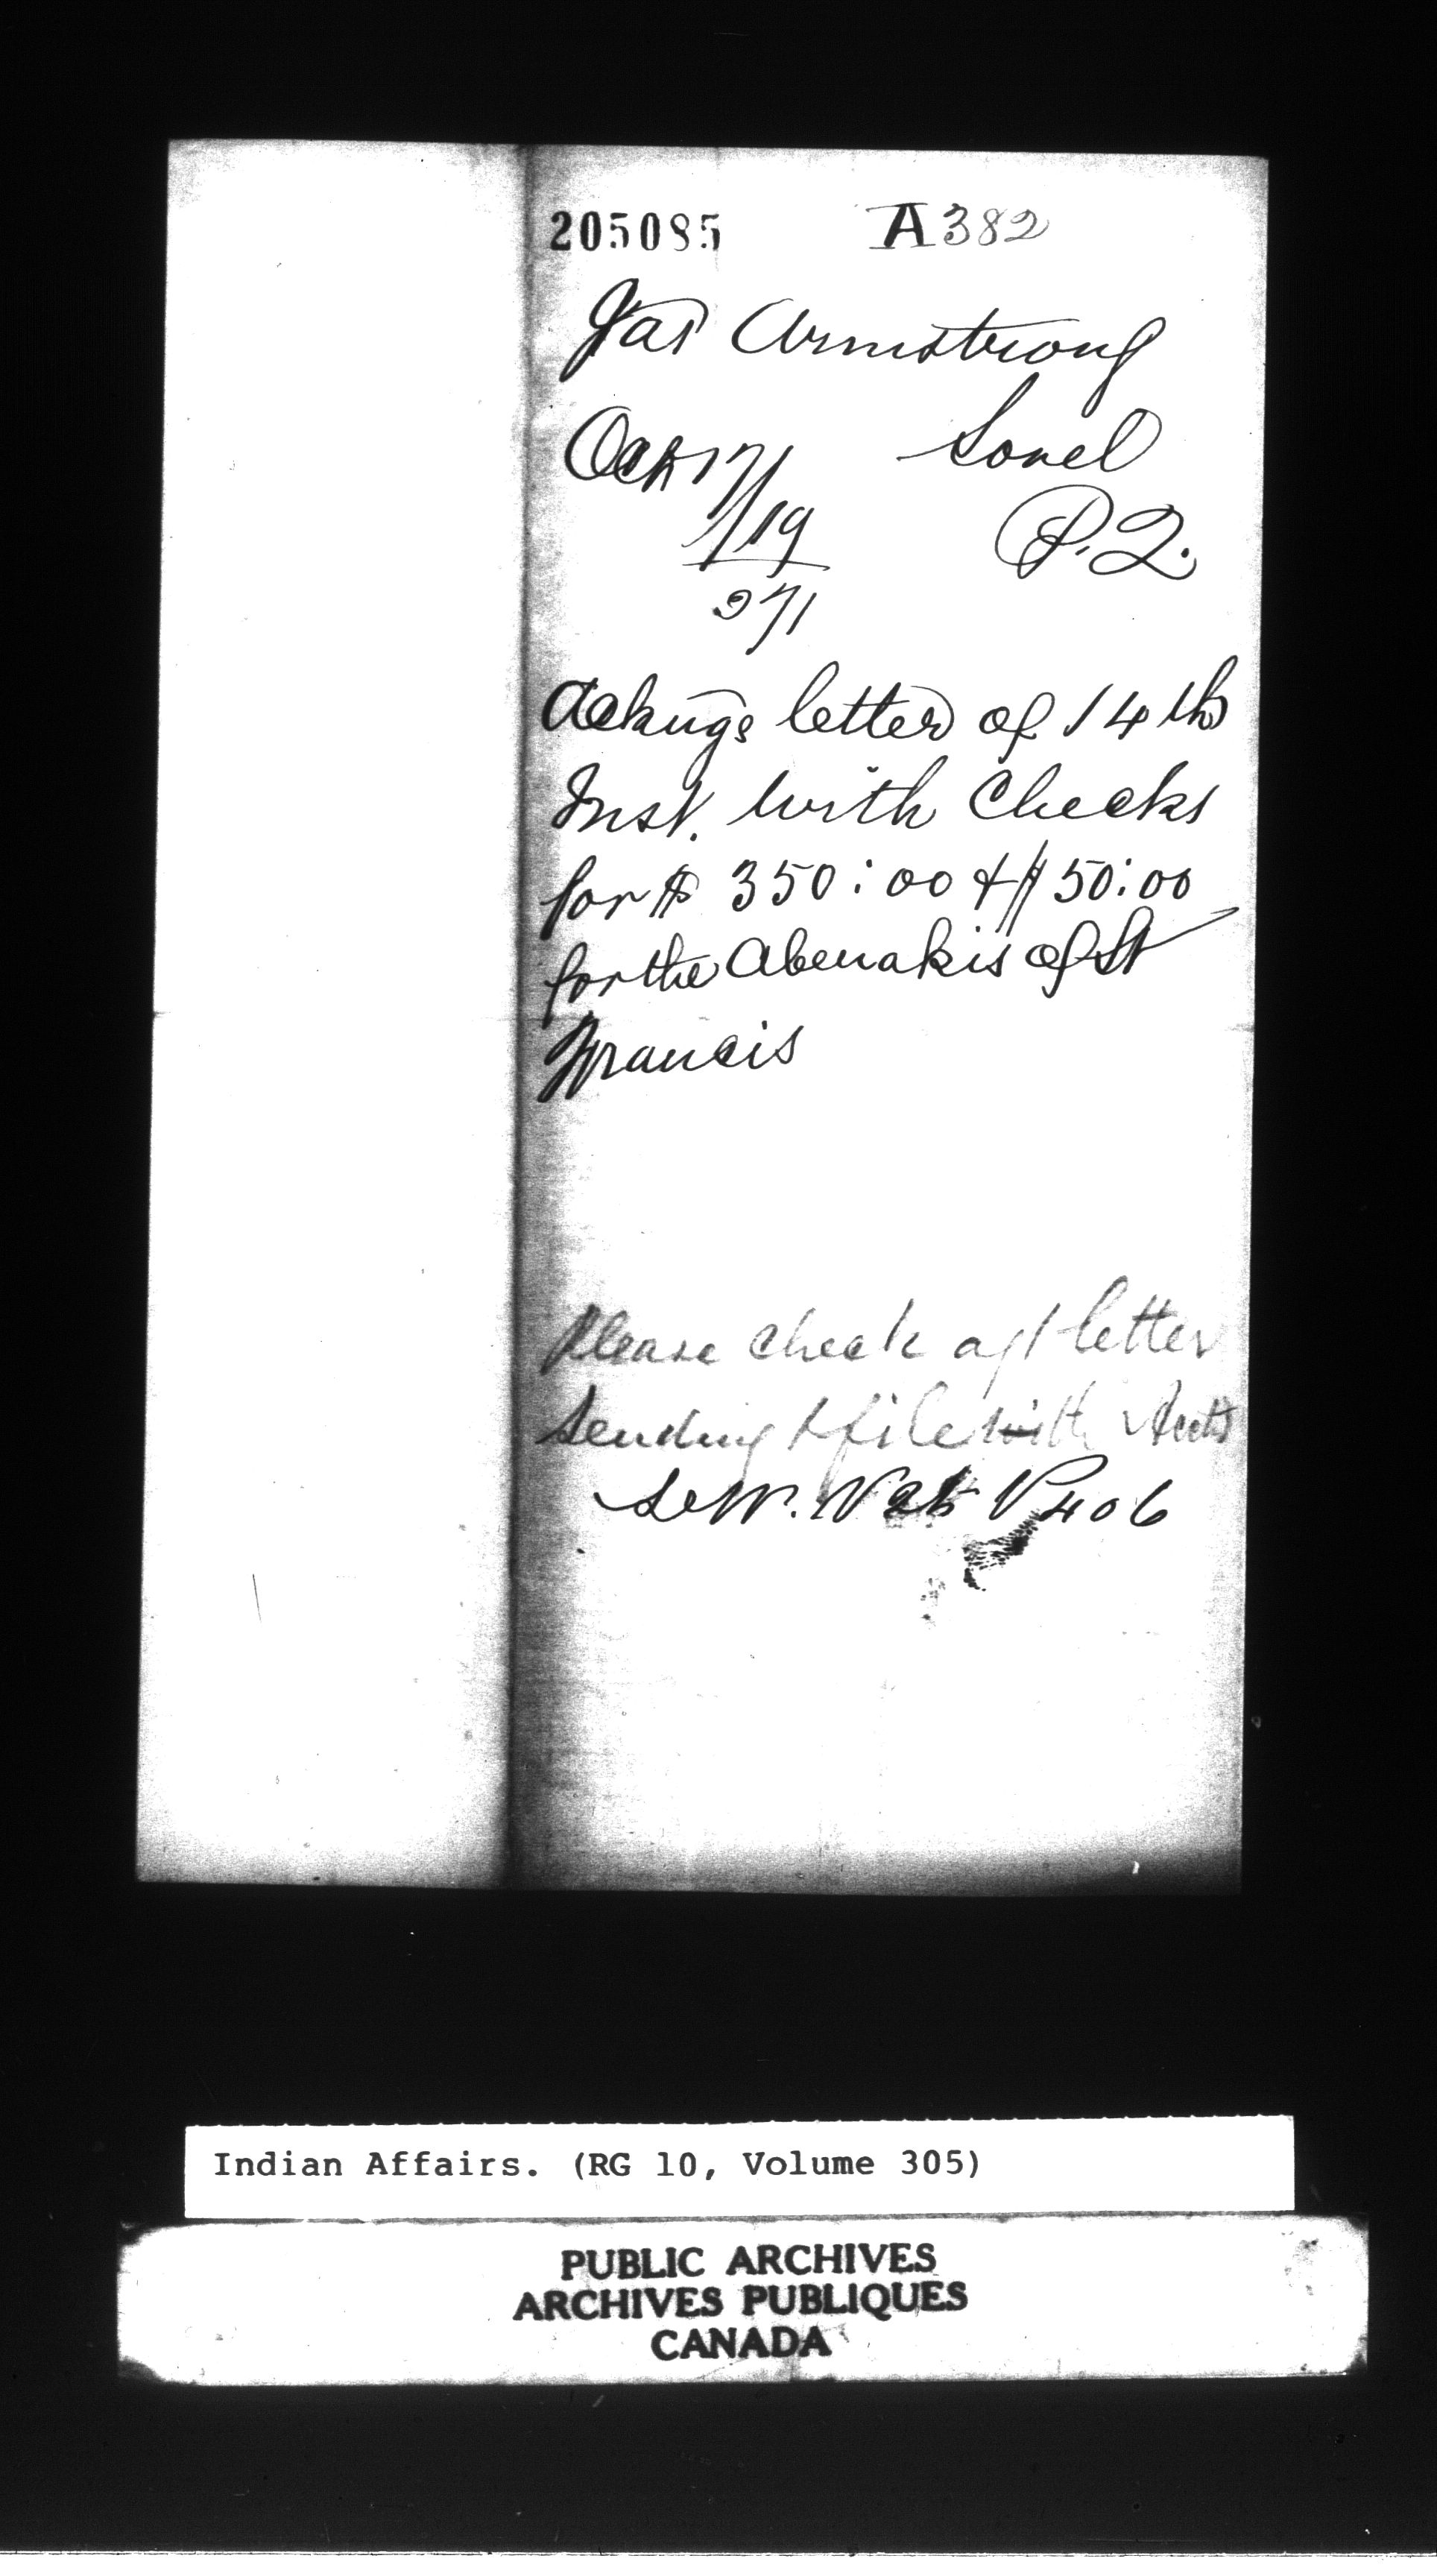 205085 A382
Jas Armstrong
Oct 17/19 Sorel
/71 P.Q.
Ackngs letter of 14th
Inst. with Checks
for $ 350:00 & $ 50:00
for the Abenakis of St
Francis
Please check agt letter
sending & file with Accts
See W. P 406
Indian Affairs. (RG 10, Volume 305)
PUBLIC ARCHIVES
ARCHIVES PUBLIQUES
CANADA